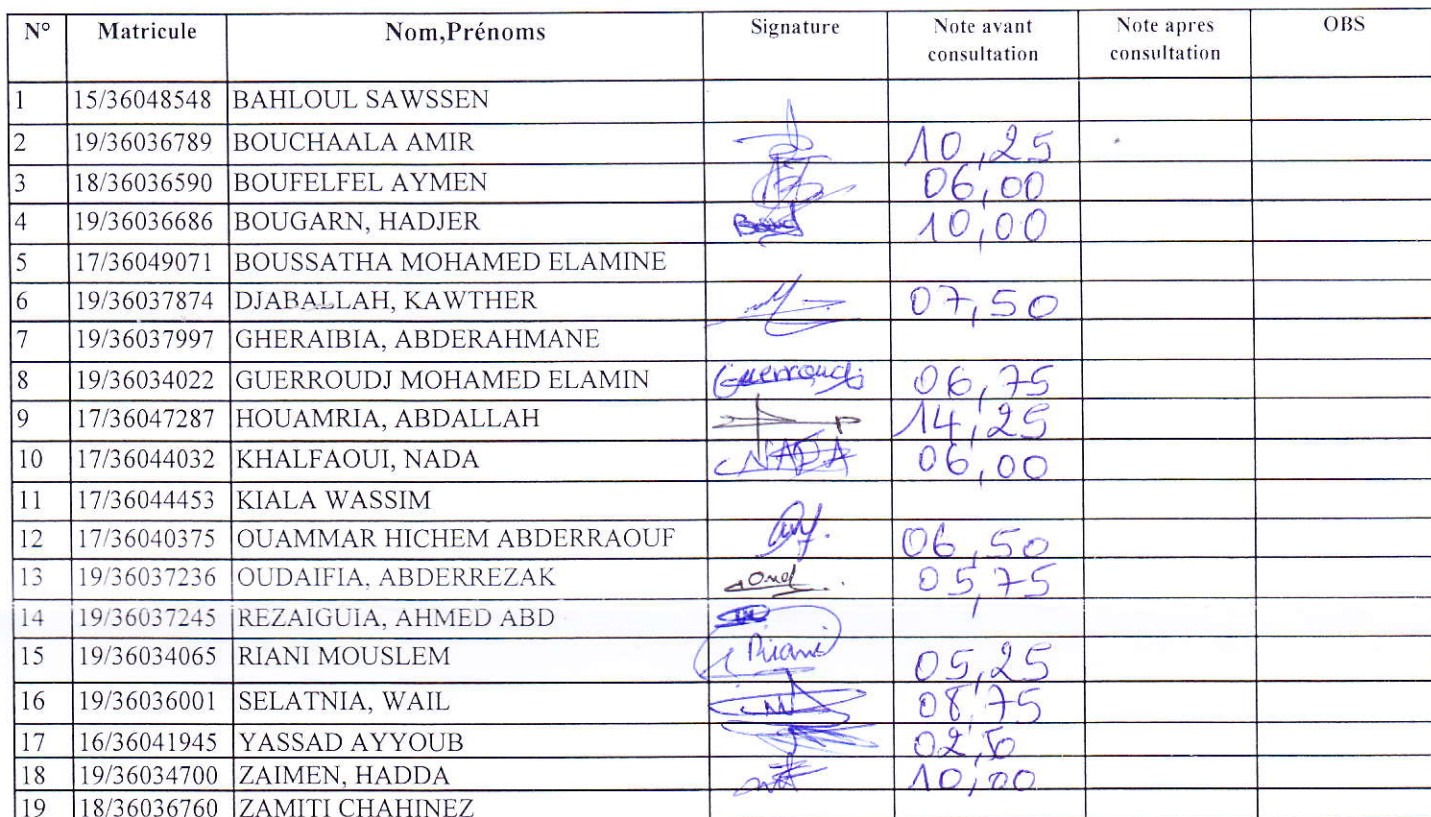 N° Matricule Nom,Prénoms Signature Note avant consultation Note apres consultation OBS
1 15/36048548 BAHLOUL SAWSSEN
2 19/36036789 BOUCHAALA AMIR 10,25
3 18/36036590 BOUFELFEL AYMEN 06,00
4 19/36036686 BOUGARN, HADJER 10,00
5 17/36049071 BOUSSATHA MOHAMED ELAMINE
6 19/36037874 DJABALLAH, KAWTHER 07,50
7 19/36037997 GHERAIBIA, ABDERAHMANE
8 19/36034022 GUERROUDJ MOHAMED ELAMIN Guerroudj 06,75
9 17/36047287 HOUAMRIA, ABDALLAH 14,25
10 17/36044032 KHALFAOUI, NADA NADA 06,00
11 17/36044453 KIALA WASSIM
12 17/36040375 OUAMMAR HICHEM ABDERRAOUF 06,50
13 19/36037236 OUDAIFIA, ABDERREZAK 05,75
14 19/36037245 REZAIGUIA, AHMED ABD
15 19/36034065 RIANI MOUSLEM Riani 05,25
16 19/36036001 SELATNIA, WAIL 08,75
17 16/36041945 YASSAD AYYOUB
18 19/36034700 ZAIMEN, HADDA 10,00
19 18/36036760 ZAMITI CHAHINEZ